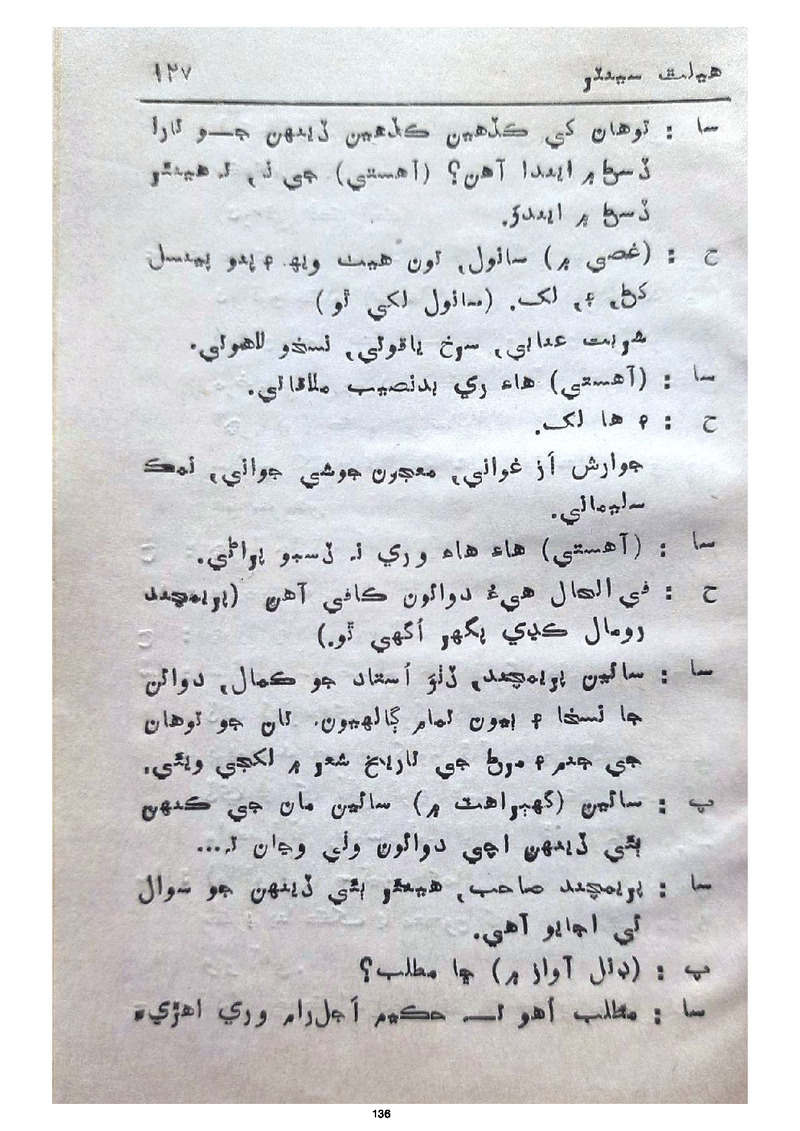 هيلٿ سينٽر ١٢٧
سا : توهان کي ڪڏهين ڪڏهين ڏينهن جو تارا
ڏسڻ ۾ ايندا آهن؟ (آهستي) جي نه، ته هينئر
ڏسڻ ۾ ايندؤ.
ح : (غصي ۾) سانول، تون هيٺ ويهہ ۽ پنو پينسل
کڻ، ۽، لک. (سانول لکي ٿو)
شربت عنابي، سرخ ياقوتي، نسخو لاهوتي.
سا : (آهستي) هاءِ ري بدنصيب ملاقاتي.
ح : ۽ ها لک.
جوارش اَز غواني، معجون جوشي جواني، نمڪ
سليماني.
سا : (آهستي) هاءِ هاءِ وري نه ڏسبو پراڻي.
ح : في الحال هيءُ دوائون ڪافي آهن (پريمچند
رومال ڪڍي پگهر اُگهي ٿو.)
سا : سائين پريمچند، ڏٺؤ اُستاد جو ڪمال، دوائن
جا نسخا ۽ ٻيون تمام ڳالهيون. تان جو توهان
جي جنم ۽ مرڻ جي تاريخ شعر ۾ لکجي ويئي.
پ : سائين (گهٻراهٽ ۾) سائين مان جي ڪنهن
ٻئي ڏينهن اچي دوائون وٺي وڃان ته...
سا : پريمچند صاحب، هينئر ٻئي ڏينهن جو سوال
ئي اجايو آهي.
پ : (ڊنل آواز ۾) ڇا مطلب؟
سا : مطلب اُهو تـ حڪيم اَجل رام وري اهڙيءَ
136